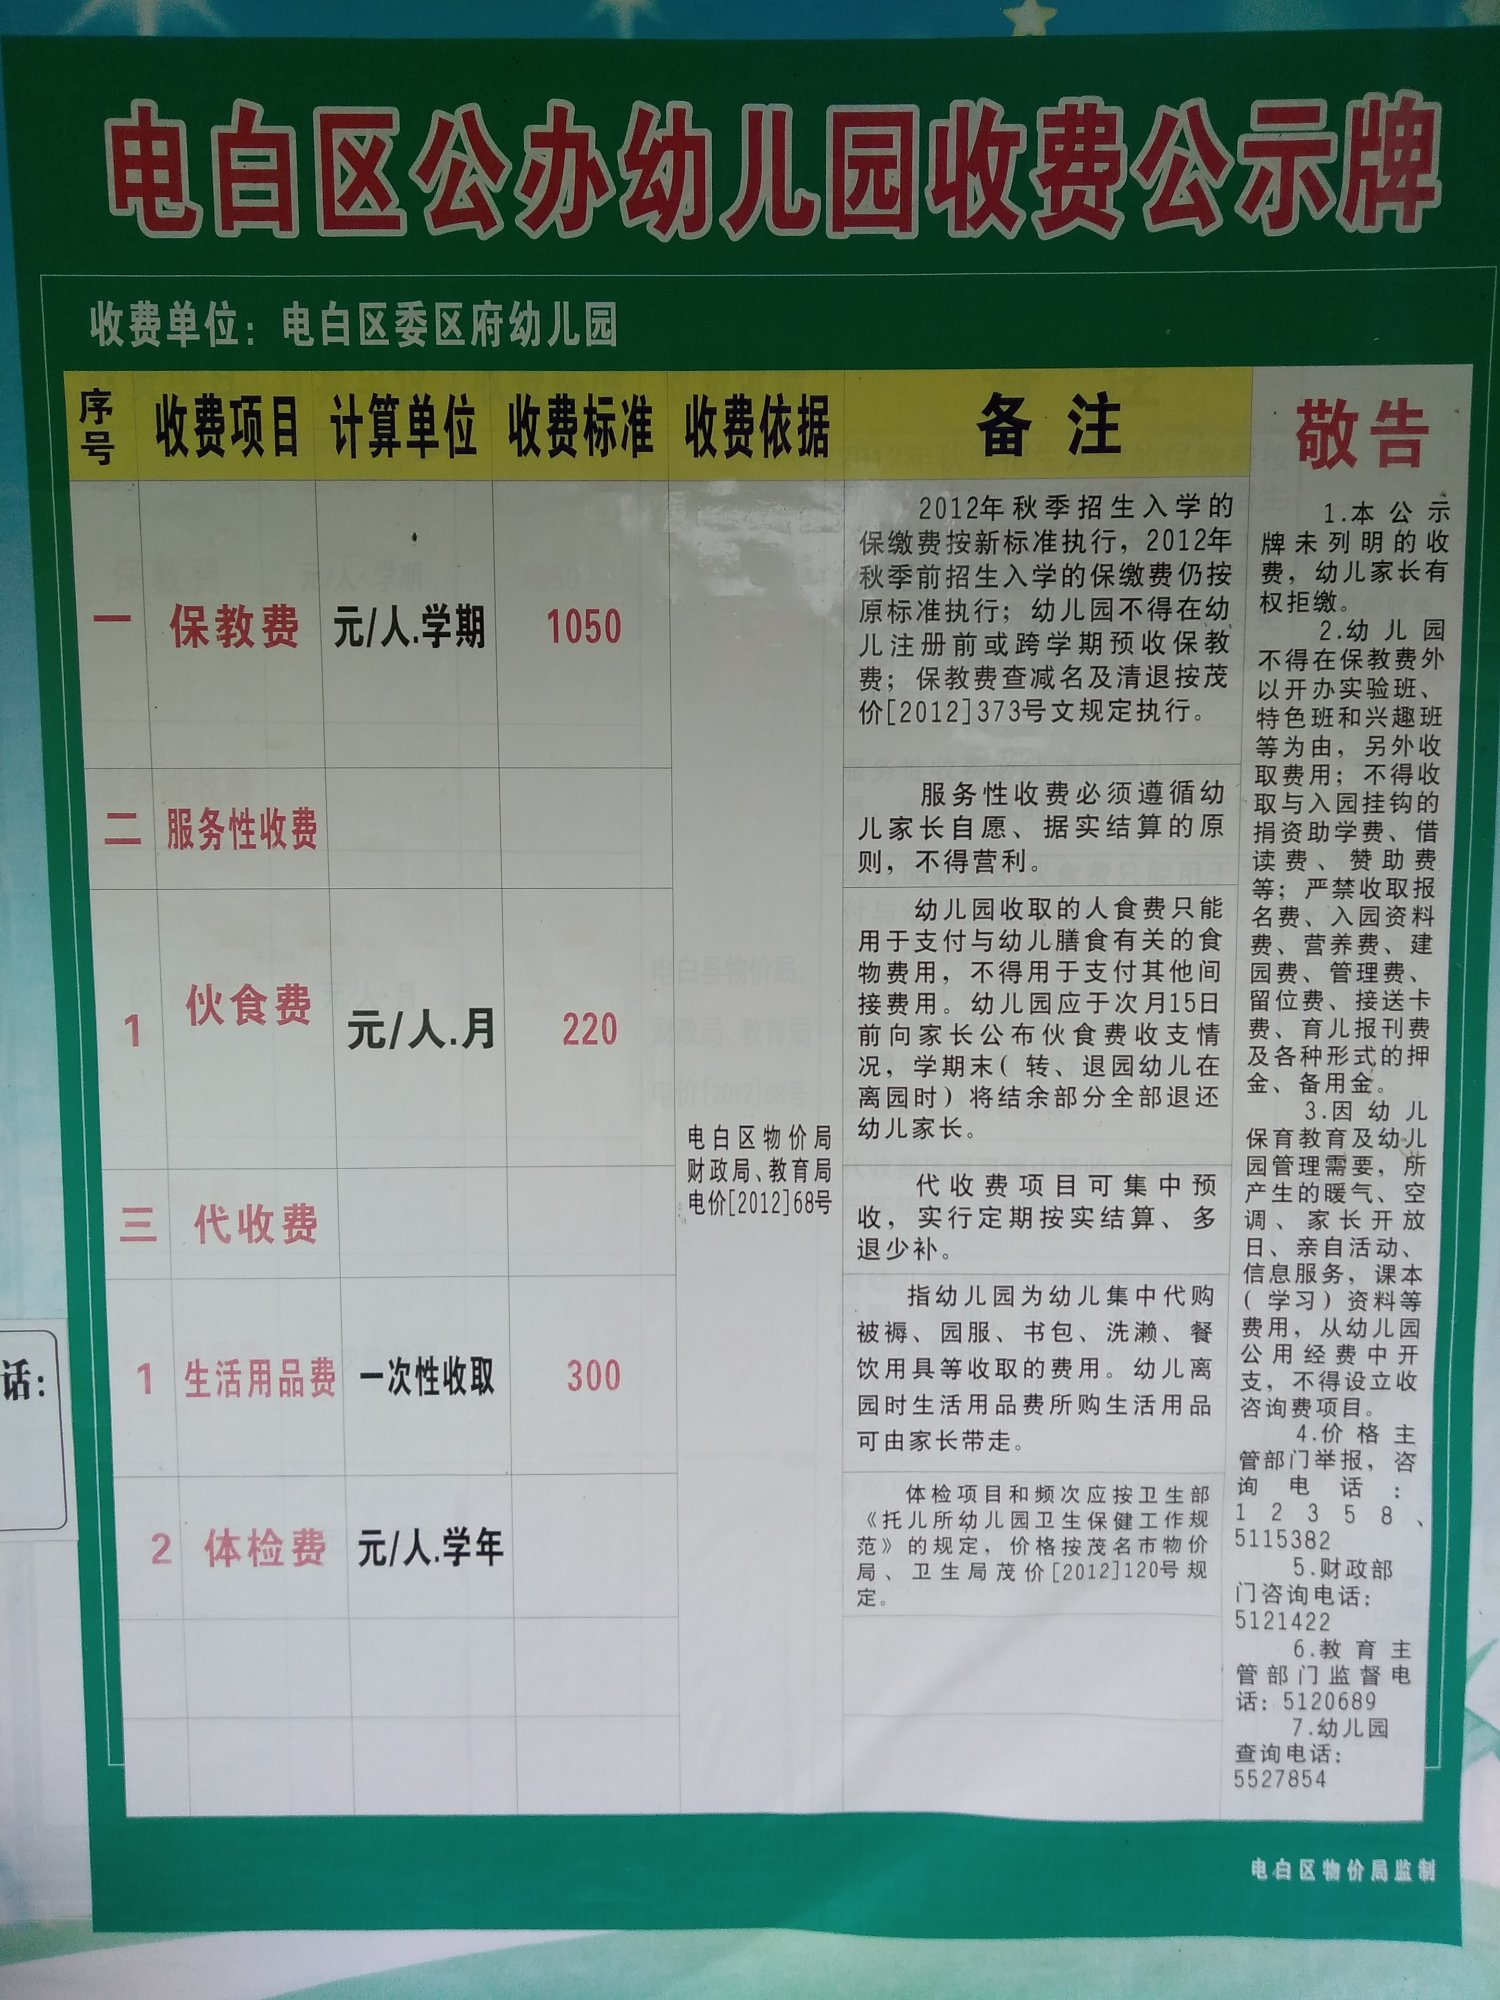 电白区公办幼儿园收费公示牌
收费单位：电白区委区府幼儿园
序号 收费项目 计算单位 收费标准 收费依据 备注 敬告
一 保教费 元/人.学期 1050
2012年秋季招生入学的
保缴费按新标准执行，2012年
秋季前招生入学的保缴费仍按
原标准执行；幼儿园不得在幼
儿注册前或跨学期预收保教
费；保教费查减名及清退按茂
价[2012]373号文规定执行。
二 服务性收费
服务性收费必须遵循幼
儿家长自愿、据实结算的原
则，不得营利。
1 伙食费 元/人.月 220
幼儿园收取的人食费只能
用于支付与幼儿膳食有关的食
物费用，不得用于支付其他间
接费用。幼儿园应于次月15日
前向家长公布伙食费收支情
况，学期末（转、退园幼儿在
离园时）将结余部分全部退还
幼儿家长。
电白区物价局
财政局、教育局
电价[2012]68号
三 代收费
代收费项目可集中预
收，实行定期按实结算、多
退少补。
1 生活用品费 一次性收取 300
指幼儿园为幼儿集中代购
被褥、园服、书包、洗濑、餐
饮用具等收取的费用。幼儿离
园时生活用品费所购生活用品
可由家长带走。
2 体检费 元/人.学年
体检项目和频次应按卫生部
《托儿所幼儿园卫生保健工作规
范》的规定，价格按茂名市物价
局、卫生局茂价[2012]120号规
定。
1.本公示
牌未列明的收
费，幼儿家长有
权拒缴。
2.幼儿园
不得在保教费外
以开办实验班、
特色班和兴趣班
等为由，另外收
取费用；不得收
取与入园挂钩的
捐资助学费、借
读费、赞助费
等；严禁收取报
名费、入园资料
费、营养费、建
园费、管理费、
留位费、接送卡
费、育儿报刊费
及各种形式的押
金、备用金。
3.因幼儿
保育教育及幼儿
园管理需要，所
产生的暖气、空
调、家长开放
日、亲自活动、
信息服务，课本
（学习）资料等
费用，从幼儿园
公用经费中开
支，不得设立收
咨询费项目。
4.价格主
管部门举报，咨
询电话：
12358、
5115382
5.财政部
门咨询电话：
5121422
6.教育主
管部门监督电
话：5120689
7.幼儿园
查询电话：
5527854
电白区物价局监制
话：